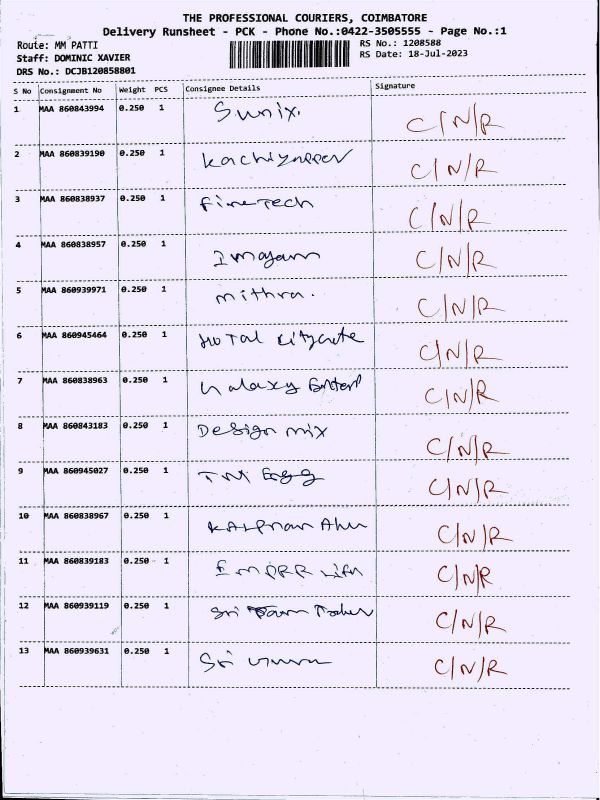 THE PROFESSIONAL COURIERS, COIMBATORE
Delivery Runsheet - PCK - Phone No.:0422-3505555 - Page No.:1
Route: MM PATTI RS No.: 1208588
Staff: DOMINIC XAVIER RS Date: 18-Jul-2023
DRS No.: DCJB120858801
S No Consignment No Weight PCS Consignee Details Signature
1 MAA 860843994 0.250 1 Sunix. C/N/R
2 MAA 860839190 0.250 1 C/N/R
3 MAA 860838937 0.250 1 FineTech C/N/R
4 MAA 860838957 0.250 1 Imayam C/N/R
5 MAA 860939971 0.250 1 mithra. C/N/R
6 MAA 860945464 0.250 1 HOTAL C/N/R
7 MAA 860838963 0.250 1 Galaxy C/N/R
8 MAA 860843183 0.250 1 Design mix C/N/R
9 MAA 860945027 0.250 1 TM Egg C/N/R
10 MAA 860838967 0.250 1 C/N/R
11 MAA 860839183 0.250 1 C/N/R
12 MAA 860939119 0.250 1 Sri C/N/R
13 MAA 860939631 0.250 1 Sri C/N/R